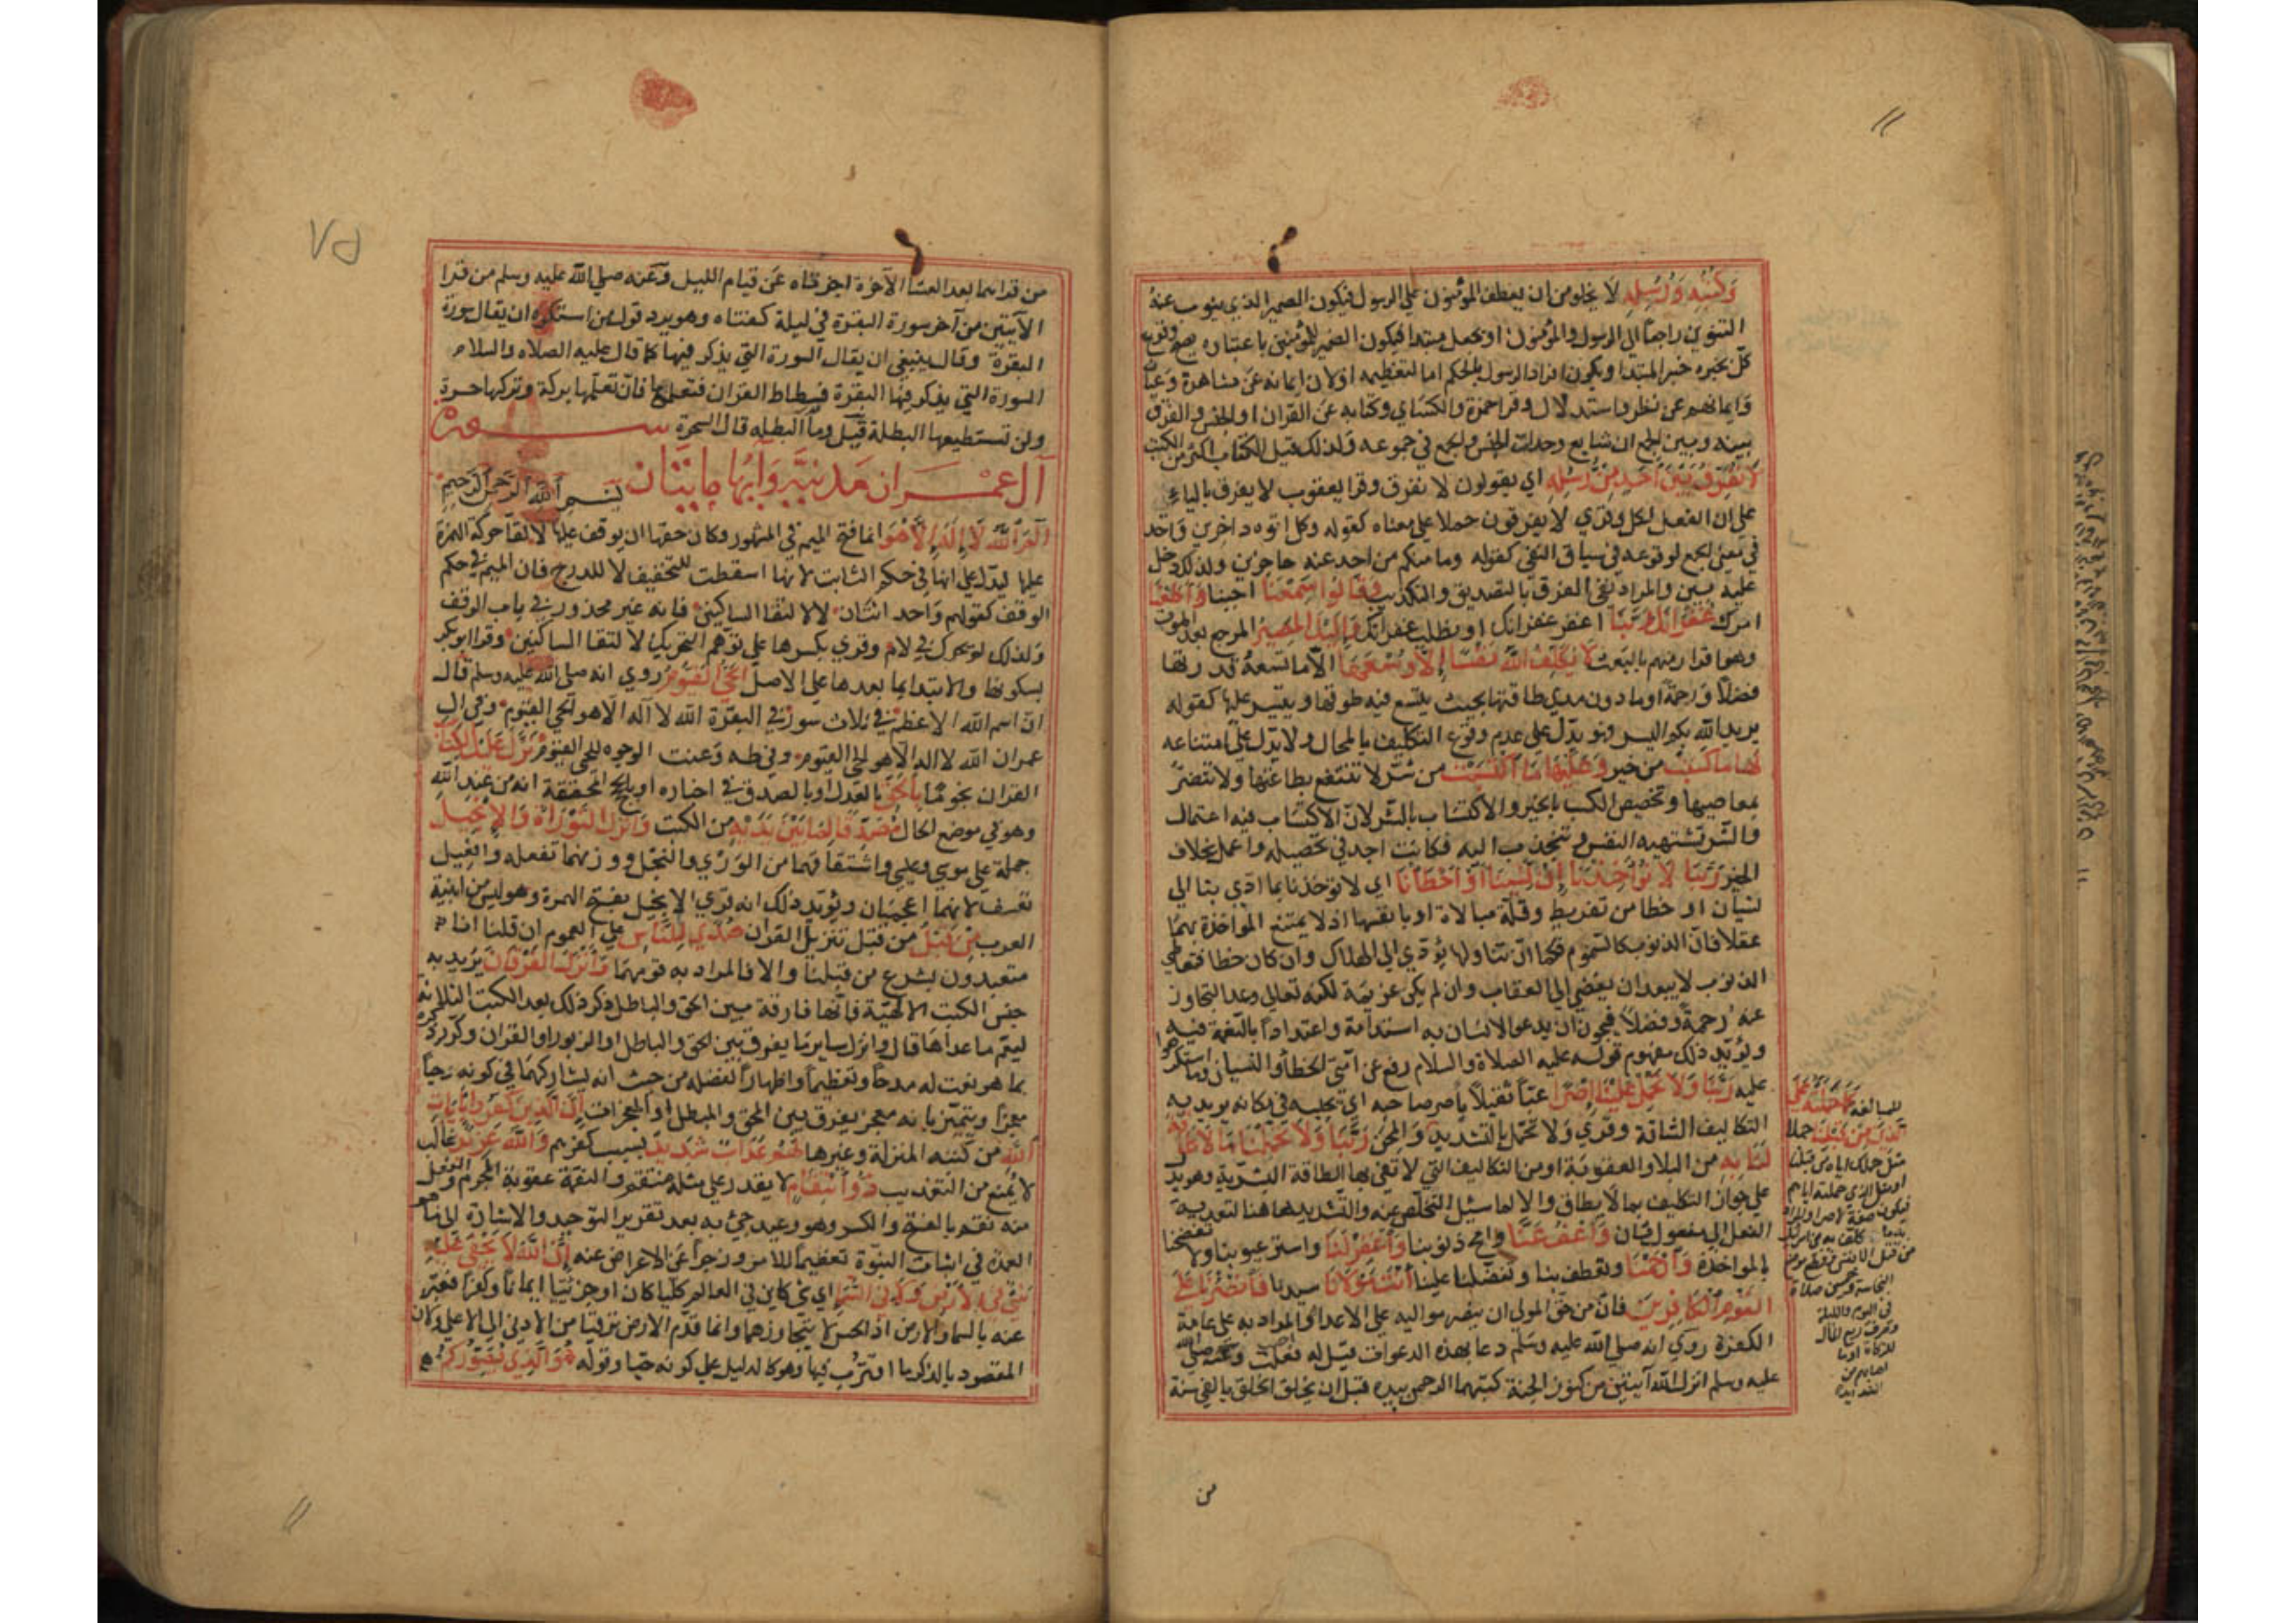 وَكُتُبِهِ وَرُسُلِهِ لا يخلو من ان يعطف المؤمنون على الرسول فيكون الضمير الذي ينوب عنه
التنوين راجعا الى الرسول والمؤمنون او يجعل مبتدا فيكون الضمير للمؤمنين باعتباره يصح وقوع
كل بخبره خبر المبتدا ويكون افراد الرسول بالحكم اما لتعظيمه او لان ايمانه عن مشاهدة وعيان
وايمانهم عن نظر واستدلال وقرا حمزة والكسائي وكتابه يعني القران او الجنس والفرق
بينه وبين الجمع ان شايع وحدات الجنس والجمع في جموعه ولذلك قيل الكتاب اكثر من الكتب
لا نُفَرِّقُ بَيْنَ أَحَدٍ مِنْ رُسُلِهِ اي يقولون لا نفرق وقرا يعقوب لا يفرق بالياء
على ان الفعل لكل وقري لا يفرقون حملا على معناه كقوله وكل اتوه داخرين واحد
في معنى الجمع لوقوعه في سياق النفي كقوله وما منكم من احد عنه حاجزين ولذلك دخل
عليه بين والمراد نفي الفرق بالتصديق والتكذيب وَقَالُوا سَمِعْنَا اجبنا وَأَطَعْنَا
امرك غُفْرَانَكَ رَبَّنَا اغفر غفرانك او نطلب غفرانك وَإِلَيْكَ الْمَصِيرُ المرجع بعد الموت
وهو اقرار منهم بالبعث لا يُكَلِّفُ اللَّهُ نَفْسًا إِلَّا وُسْعَهَا الا ما تسعه قدرتها
فضلا ورحمة او ما دون مدى طاقتها بحيث يتسع فيه طوقها ويتيسر عليها كقوله
يريد الله بكم اليسر وهو يدل على عدم وقوع التكليف بالمحال ولا يدل على امتناعه
لَهَا مَا كَسَبَتْ من خير وَعَلَيْهَا مَا اكْتَسَبَتْ من شر لا تنتفع بطاعتها ولا تتضرر
بمعاصيها وتخصيص الكسب بالخير والاكتساب بالشر لان الاكتساب فيه اعتمال
والشر تشتهيه النفس وتنجذب اليه فكانت اجد في تحصيله واعمل بخلاف
الخير رَبَّنَا لا تُؤَاخِذْنَا إِنْ نَسِينَا أَوْ أَخْطَأْنَا اي لا تؤاخذنا بما ادى بنا الى
نسيان او خطا من تفريط وقلة مبالاة او بانفسهما اذ لا يمتنع المواخذة بهما
عقلا فان الذنوب كالسموم فكما ان تناولها يؤدي الى الهلاك وان كان خطا فتعاطي
الذنوب لا يبعد ان يفضي الى العقاب وان لم يكن عزيمة لكنه تعالى وعد التجاوز
عنه رحمة وفضلا فيجوز ان يدعو الانسان به استدامة واعتدادا بالنعمة فيه
ويؤيد ذلك مفهوم قوله عليه الصلاة والسلام رفع عن امتي الخطأ والنسيان وما استكرهوا
عليه رَبَّنَا وَلا تَحْمِلْ عَلَيْنَا إِصْرًا عبأ ثقيلا يأصر صاحبه اي يحبسه في مكانه يريد به
التكاليف الشاقة وقري ولا تحمل بالتشديد رَبَّنَا وَلا تُحَمِّلْنَا مَا لا طَاقَةَ
لَنَا بِهِ من البلاء والعقوبة او من التكاليف التي لا تفي بها الطاقة البشرية وهو يدل
على جواز التكليف بما لا يطاق والا لما سئل التخلص عنه والتشديد ها هنا لتعدية
الفعل الى مفعول ثان وَاعْفُ عَنَّا وامح ذنوبنا وَاغْفِرْ لَنَا واستر عيوبنا ولا تفضحنا
بالمواخذة وَارْحَمْنَا وتعطف بنا وتفضل علينا أَنْتَ مَوْلانَا سيدنا فَانْصُرْنَا عَلَى
الْقَوْمِ الْكَافِرِينَ فان من حق المولى ان ينصر مواليه على الاعدا او المراد به عامة
الكفرة روي انه صلى الله عليه وسلم دعا بهذه الدعوات قيل له فعلت وعنه صلى الله
عليه وسلم انزل الله آيتين من كنوز الجنة كتبهما الرحمن بيده قبل ان يخلق الخلق بالفي سنة
للمبالغة كَمَا حَمَلْتَهُ عَلَى
الَّذِينَ مِنْ قَبْلِنَا حملا
مثل حملك اياه من قبلنا
او مثل الذي حملته اياهم
فيكون صفة لاصرا والمراد
به ما كلف به بنو اسرائيل
من قتل الانفس وقطع موضع
النجاسة وخمسين صلاة
في اليوم والليلة
وصرف ربع المال
للزكاة او ما
اصابهم من
الشدايد
من
٧٥
من قراهما بعد العشا الآخرة اجزءتاه عن قيام الليل وعنه صلى الله عليه وسلم من قرا
الآيتين من آخر سورة البقرة في ليلة كفتاه وهو يرد قول من استنكره ان يقال سورة
البقرة وقال ينبغي ان يقال السورة التي يذكر فيها كما قال عليه الصلاه والسلام
السورة التي يذكر فيها البقرة فسطاط القران فتعلموها فان تعلمها بركة وتركها حسرة
ولن تستطيعها البطلة قيل وما البطله قال السحرة سورة
آل عمران مدنية وآيها مايتان بسم الله الرحمن الرحيم
الم اللَّهُ لا إِلَهَ إِلَّا هُوَ انما فتح الميم في المشهور وكان حقها ان يوقف عليها لالقا حركة الهمزة
عليها ليدل على انها في حكم الثابت لانها اسقطت للتخفيف لا للدرج فان الميم في حكم
الوقف كقولهم واحد اثنان لا لالتقا الساكنين فانه غير محذور في باب الوقف
ولذلك لم يحرك في لام وقري بكسرها على توهم التحريك لالتقا الساكنين وقرا ابو بكر
بسكونها والابتدا بما بعدها على الاصل الْحَيُّ الْقَيُّومُ روي انه صلى الله عليه وسلم قال
ان اسم الله الاعظم في ثلاث سور في البقرة الله لا اله الا هو الحي القيوم وفي ال
عمران الله لا اله الا هو الحي القيوم وفي طه وعنت الوجوه للحي القيوم نَزَّلَ عَلَيْكَ الْكِتَابَ
القران نجوما بِالْحَقِّ بالعدل او بالصدق في اخباره او بالحجج المحققة انه من عند الله
وهو في موضع الحال مُصَدِّقًا لِمَا بَيْنَ يَدَيْهِ من الكتب وَأَنْزَلَ التَّوْرَاةَ وَالإِنْجِيلَ
جملة على موسى وعيسى واشتقاقهما من الورى والنجل ووزنهما بتفعلة وافعيل
تعسف لانهما اعجميان ويؤيد ذلك انه قري الانجيل بفتح الهمزة وهو ليس من ابنية
العرب مِنْ قَبْلُ من قبل تنزيل القران هُدًى لِلنَّاسِ على العموم ان قلنا انا
متعبدون بشرع من قبلنا والا فالمراد به قومهما وَأَنْزَلَ الْفُرْقَانَ يريد به
جنس الكتب الالهية فانها فارقة بين الحق والباطل ذكر ذلك بعد الكتب الثلاثة
ليعم ما عداها كانه قال وانزل ساير ما يفرق بين الحق والباطل او الزبور او القران وكرر ذكره
بما هو نعت له مدحا وتعظيما واظهارا لفضله من حيث انه يشاركهما في كونه وحيا
معجزا ويتميز بانه معجز يفرق بين المحق والمبطل او المعجزات إِنَّ الَّذِينَ كَفَرُوا بِآيَاتِ
اللَّهِ من كتبه المنزلة وغيرها لَهُمْ عَذَابٌ شَدِيدٌ بسبب كفرهم وَاللَّهُ عَزِيزٌ غالب
لا يمنع من التعذيب ذُو انْتِقَامٍ لا يقدر على مثله منتقم والنقمة عقوبة المجرم والفعل
منه نقم بالفتح والكسر وهو وعيد جيء به بعد تقرير التوحيد والاشارة الى ما هو
العمدة في اثبات النبوة تعظيما للامر وزجرا عن الاعراض عنه إِنَّ اللَّهَ لا يَخْفَى عَلَيْهِ
شَيْءٌ فِي الأَرْضِ وَلا فِي السَّمَاءِ اي شي كاين في العالم كليا كان او جزئيا ايمانا وكفرا فعبر
عنه بالسما والارض اذ الحس لا يتجاوزهما وانما قدم الارض ترقيا من الادنى الى الاعلى ولان
المقصود بالذكر ما اقترف فيها وهو كالدليل على كونه حيا وقوله هُوَ الَّذِي يُصَوِّرُكُمْ